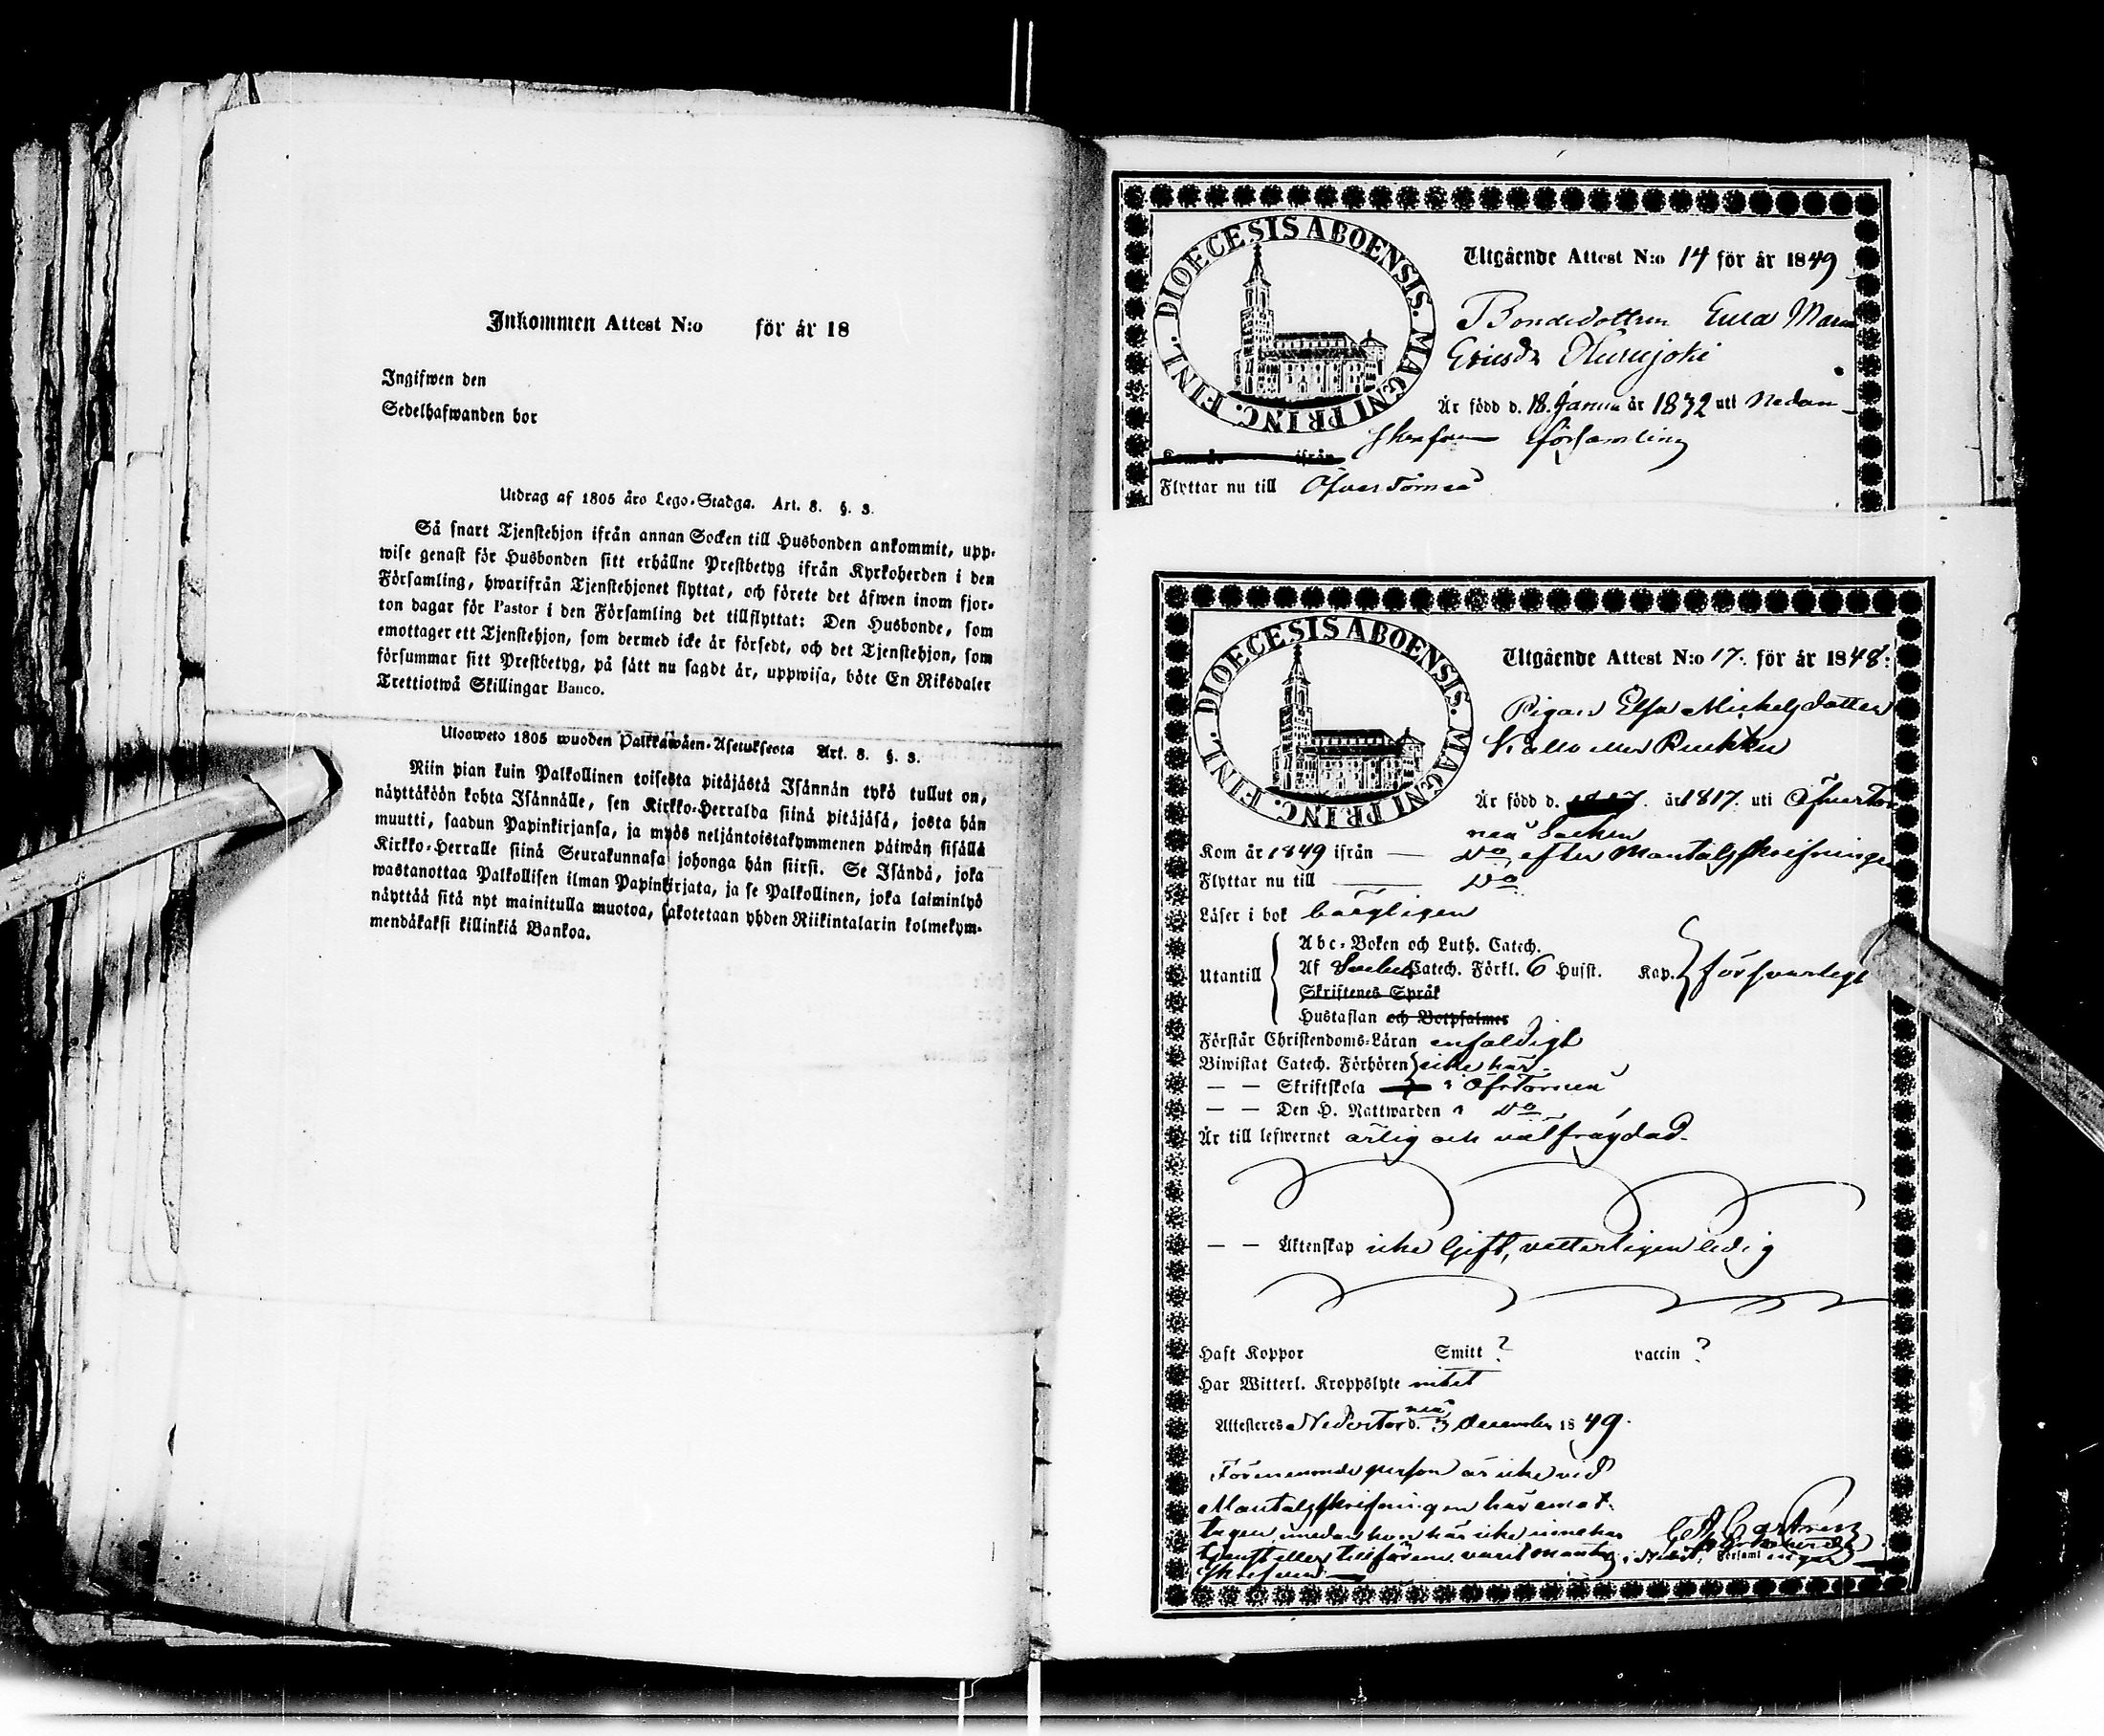 Inkommen Attest N:o för år 18
Ingifwen den
Sedelhafwanden bor
Utdrag af 1805 års Lego-Stadga. Art. 8. §. 3.
Så snart Tjenstehjon ifrån annan Socken till Husbonden ankommit, upp-
wise genast för Husbonden sitt erhållne Prestbetyg ifrån Kyrkoherden i den
Församling, hwarifrån Tjenstehjonet flyttat, och förete det äfwen inom fjor-
ton dagar för Pastor i den Församling det tillflyttat: Den Husbonde, som
emottager ett Tjenstehjon, som dermed icke är försedt, och det Tjenstehjon, som
försummar sitt Prestbetyg, på sätt nu sagdt är, uppwisa, böte En Riksdaler
Trettiotwå Skillingar Banco.
Ulosweto 1805 wuoden Palkkawäen-Asetuksesta Art. 8. §. 3.
Niin pian kuin Palkollinen toisesta pitäjästä Isännän tykö tullut on,
näyttäköön kohta Isännälle, sen Kirkko-Herralda siinä pitäjäsä, josta hän
muutti, saadun Papinkirjansa, ja myös neljäntoistakymmenen päiwän sisällä
Kirkko-Herralle siinä Seurakunnasa johonga hän siirsi. Se Isändä, joka
wastanottaa Palkollisen ilman Papinkirjata, ja se Palkollinen, joka laiminlyö
näyttää sitä nyt mainitulla muotoa, sakotetaan yhden Riikintalarin kolmekym-
mendäkaksi killinkiä Bankoa.
DIOECESIS ABOENSIS. MAGNI PRINC. FINL.
Utgående Attest N:o 14 för år 1849
Bondedottren Eva Maria
Ericsdr Kurujoki
Är född d. 18. Janua år 1832 uti Nedan-
skrefven församling
Kom år ifrån
Flyttar nu till Öfver Torneå
DIOECESIS ABOENSIS. MAGNI PRINC. FINL.
Utgående Attest N:o 17. för år 1848:
Pigan Elsa Michelsdotter
Kallo eller Ruokku
Är född d. år 1817. uti Öfvertor
neå Socken
Kom år 1849 ifrån — do efter Mantalsskrifningen
Flyttar nu till — do
Läser i bok börgligen
Utantill
Abc-Boken och Luth. Catech.
Af Catech. Förkl. 6 Hufst. Kap. försvarligt
Skriftenes Språk
Hustaflan och Botpsalmer
Förstår Christendoms-Läran enfaldigt
Biwistat Catech. Förhören icke här.
— — Skriftskola i Öfr Torneå
— — Den H. Nattwarden i do
Är till lefwernet ärlig och välfrägdad.
— — Äktenskap icke Gift, vetterligen ledig
Haft Koppor Smitt ? vaccin ?
Har Witterl. Kroppslyte intet
Attesteres Nedertor d. 3 December 1849.
neå
Förenemnde person är icke vid
Mantalsskrifningen här emot-
tagen emedan hon här icke innehar
tjenst eller tillförene varit mantals
skrifven Församl